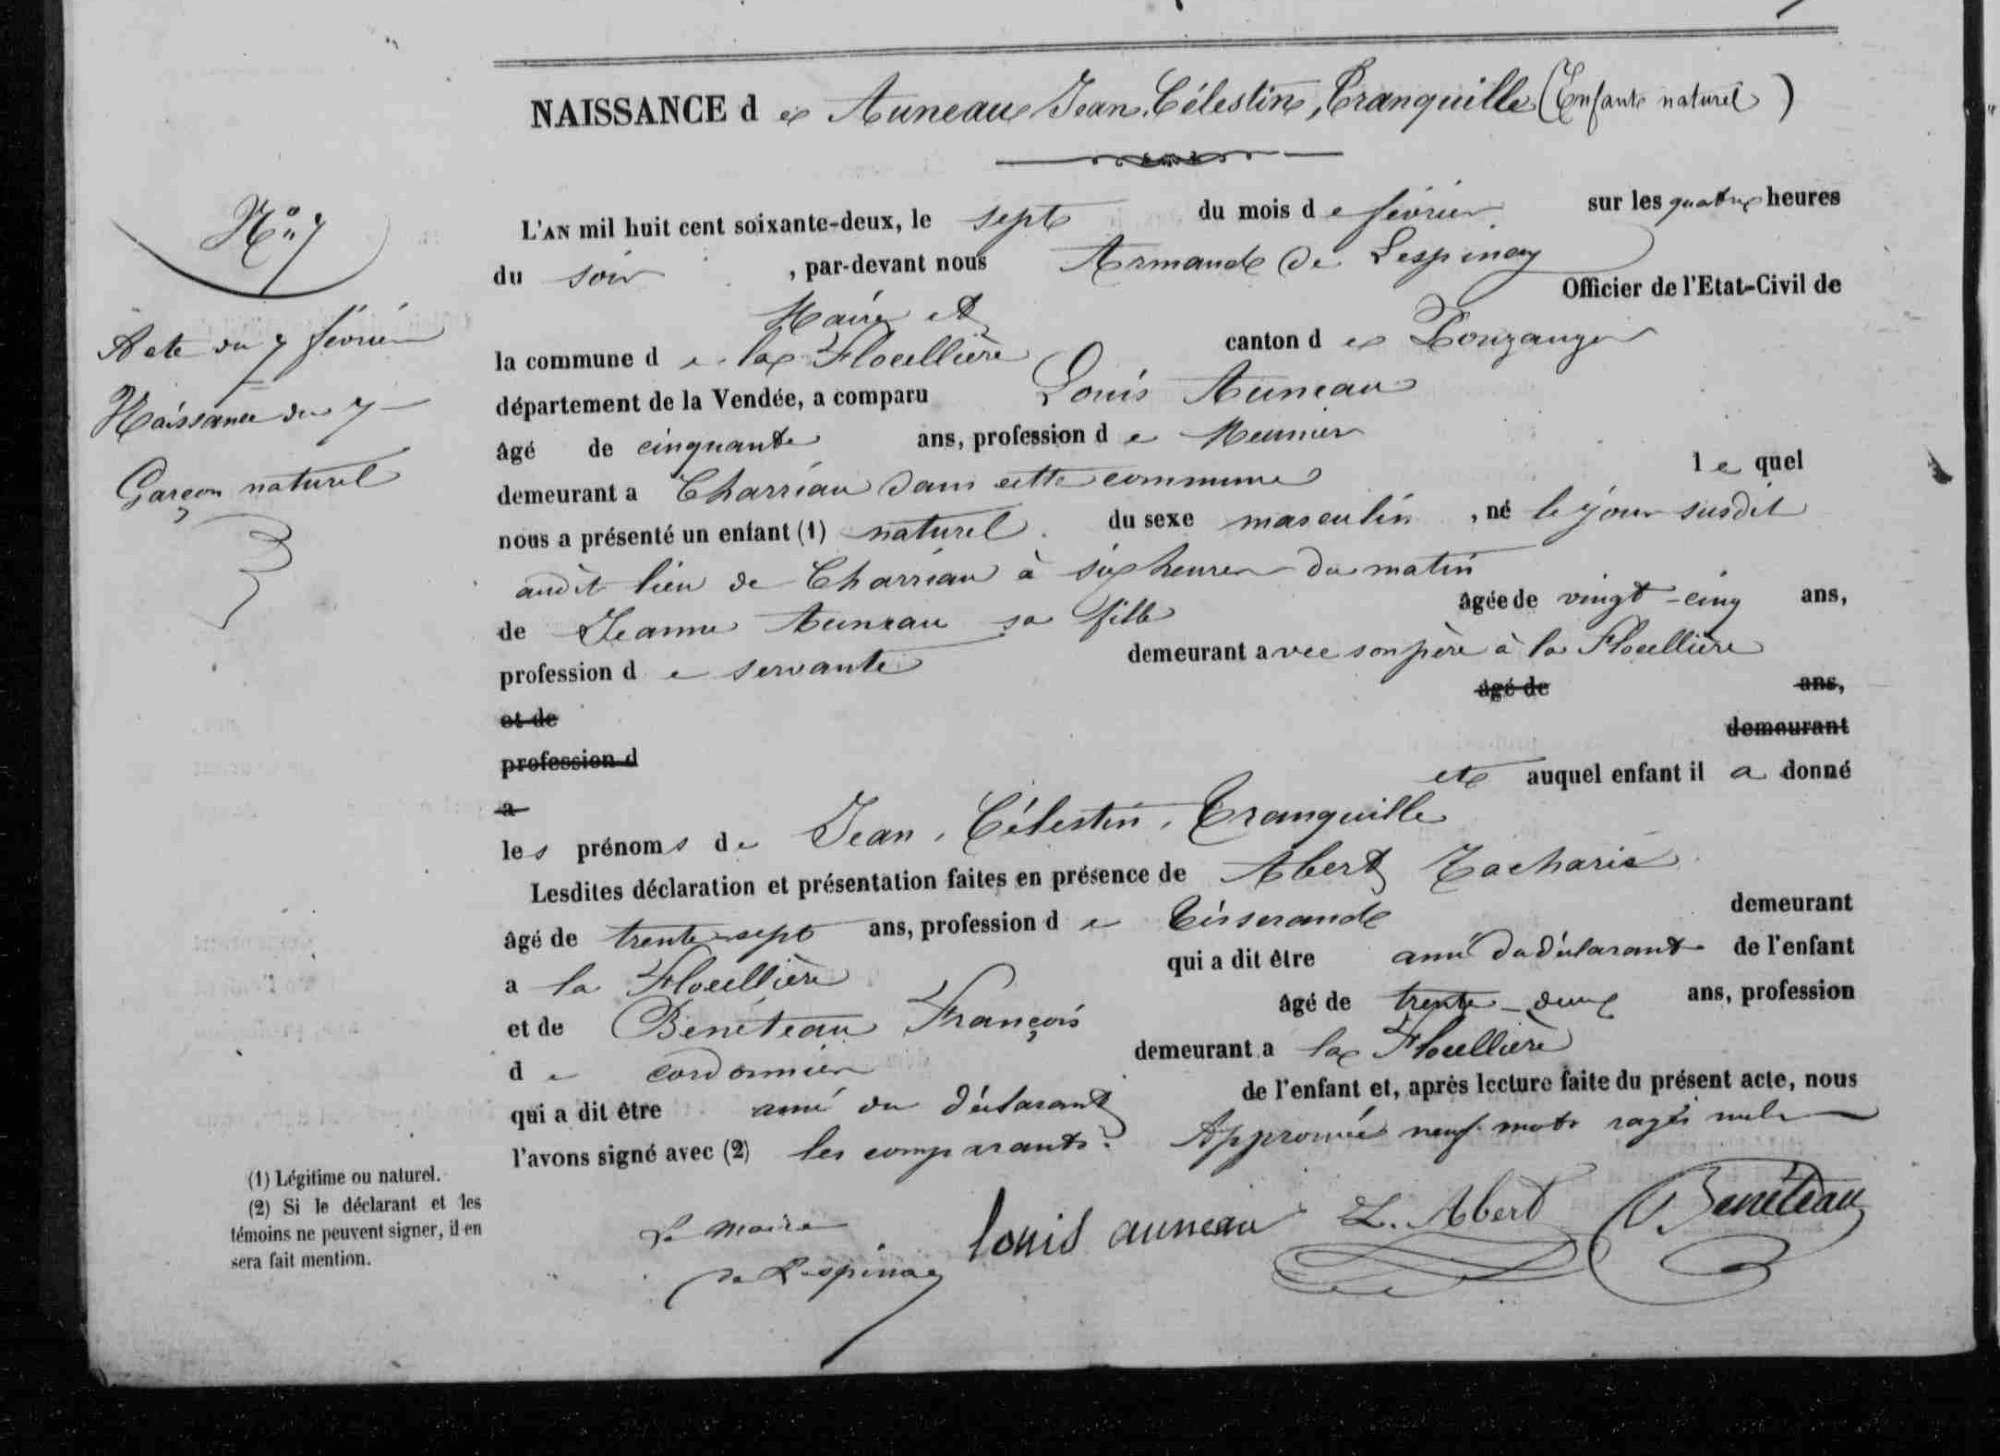 NAISSANCE de Auneau Jean, Célestin, Tranquille (Enfant naturel)
N° 7
Acte du 7 février
Naissance du 7
Garçon naturel
L'AN mil huit cent soixante-deux, le sept du mois de février sur les quatre heures
du soir, par-devant nous Armand de Lespinay
Maire et Officier de l'Etat-Civil de
la commune de la Flocellière canton de Pouzauges
département de la Vendée, a comparu Louis Auneau
âgé de cinquante ans, profession de Meunier
demeurant a Charriau dans cette commune lequel
nous a présenté un enfant (1) naturel du sexe masculin, né le jour susdit
audit lieu de Charriau à six heures du matin
de Jeanne Auneau sa fille âgée de vingt-cinq ans,
profession de servante demeurant avec son père à la Flocellière
et de âgé de ans,
profession d demeurant
a et auquel enfant il a donné
les prénoms de Jean, Célestin, Tranquille
Lesdites déclaration et présentation faites en présence de Abert Zacharie
âgé de trente-sept ans, profession de Tisserand demeurant
a la Flocellière qui a dit être ami du déclarant de l'enfant
et de Benéteau François âgé de trente-deux ans, profession
de cordonnier demeurant a la Flocellière
qui a dit être ami du déclarant de l'enfant et, après lecture faite du présent acte, nous
l'avons signé avec (2) les comparants. Approuvé neuf mots rayés nuls
(1) Légitime ou naturel.
(2) Si le déclarant et les
témoins ne peuvent signer, il en
sera fait mention.
Le maire
de Lespinay
louis auneau Z. Abert Benéteau